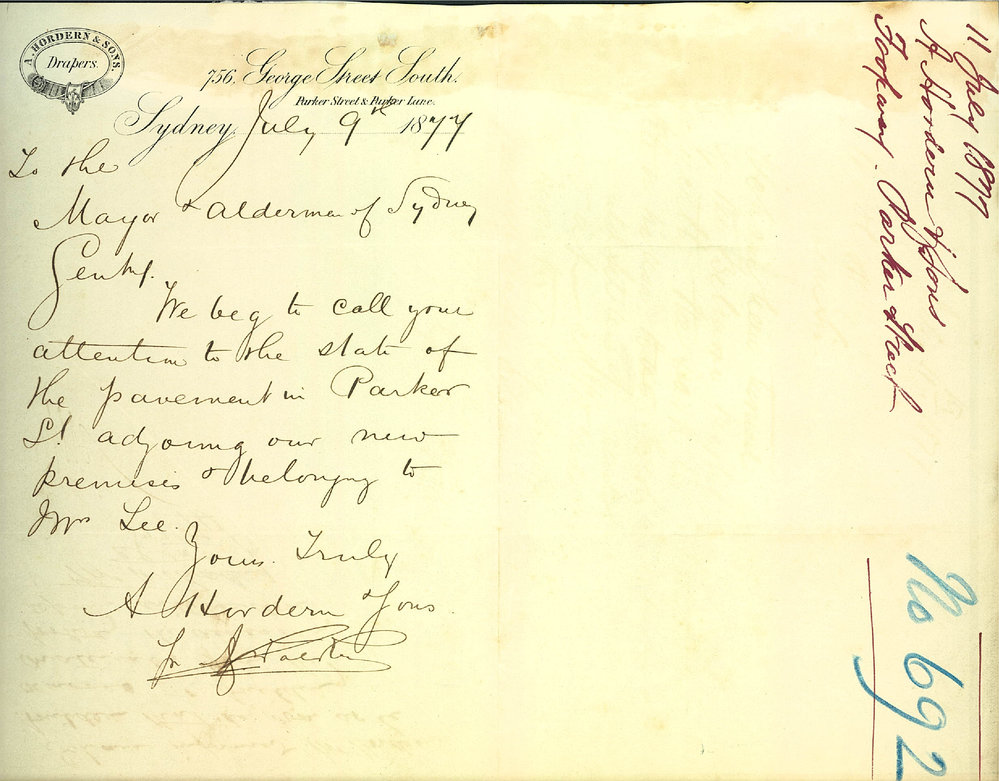 A. HORDERN & SONS.
Drapers.
756, George Street South.
Parker Street & Parker Lane.
Sydney, July 9th 1877
To the
Mayor & Alderman of Sydney
Gentn.
We beg to call your
attention to the state of
the pavement in Parker
St. adjoing our new
premises & belonging to
Mrs Lee.
Yours Truly
A Hordern & Sons.
11 July 1877
A Hordern & Sons
Footway. Parker Street
No 692